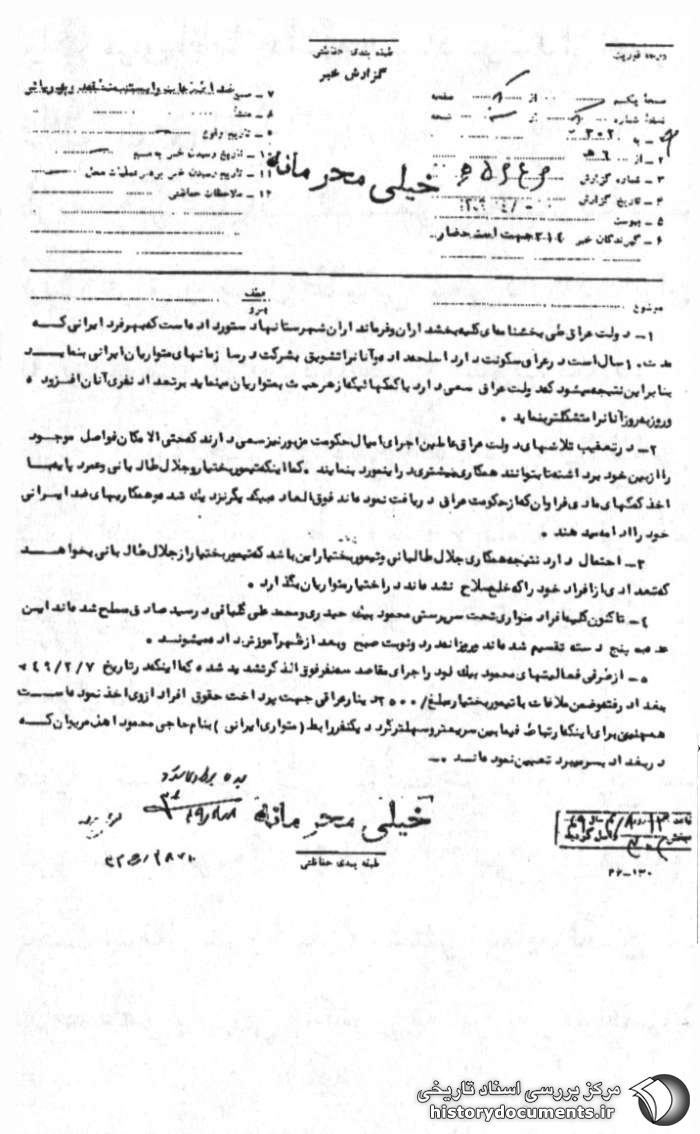 درجه فوریت
طبقه بندی حفاظتی
گزارش خبر
صفحهٔ یکم از صفحه
نسخهٔ شماره از نسخه
۱ – به ۳۰۲
۲ – از ۶ ه
۳ – شماره گزارش
۴ – تاریخ گزارش
۵ – پیوست
۶ – گیرندگان خبر ۳۱۶ جهت استحضار
۷ –
۸ – منشأ
۹ – تاریخ وقوع
۱۰ – تاریخ رسیدن خبر به منبع
۱۱ – تاریخ رسیدن خبر برهبر عملیات محل
۱۲ – ملاحظات حفاظتی
خیلی محرمانه
موضوع
عطف
پیرو
۱ – دولت عراق طی بخشنامه‌ای کلیه بخشداران و فرمانداران شهرستانها دستور داده است که بهر فرد ایرانی که
مدت ۱۰ سال است در عراق سکونت دارد اسلحه داده و آنان را تشویق بشرکت در سازمانهای متواریان ایرانی بنماید
بنابراین نتیجه میشود که دولت عراق سعی دارد با کمکهائیکه از هر حیث به متواریان مینماید بر تعداد نفری آنان افزوده
و روز بروز آنان را متشکلتر بنماید .
۲ – در تعقیب تلاشهای دولت عراق عاملین اجرای امیال حکومت مزبور نیز سعی دارند که حتی الامکان فواصل موجود
را از بین خود برداشته تا بتوانند همکاری بیشتری را بنمایند . کما اینکه تیمور بختیار و جلال طالبانی و عمر دبابه با
اخذ کمکهای مادی فراوان که از حکومت عراق دریافت نموده‌اند فوق العاده بیکدیگر نزدیک شده و همکاریهای ضد ایرانی
خود را ادامه میدهند .
۳ – احتمال دارد نتیجه همکاری جلال طالبانی و تیمور بختیار این باشد که تیمور بختیار از جلال طالبانی بخواهد
که تعدادی از افراد خود را که خلع سلاح نشده‌اند در اختیار متواریان بگذارد .
۴ – تاکنون کلیه افراد متواری تحت سرپرستی محمود بیگ حیدری و محمد علی گلبانی در سید صادق مسلح شده‌اند این
عده به پنج دسته تقسیم شده‌اند و روزانه در دو نوبت صبح و بعد از ظهر آموزش داده میشوند .
۵ – از طرفی فعالیتهای محمود بیگ خود را جرای مقاصد سه نفر فوق الذکر تشدید شده کما اینکه در تاریخ ۴۹/۲/۷ به
بغداد رفته و ضمن ملاقات با تیمور بختیار مبلغ ۲۵۰۰ دینار عراقی جهت پرداخت حقوق افراد از وی اخذ نموده است
همچنین برای اینکه ارتباط فیمابین سریعتر و سهلتر گردد یکنفر رابط (متواری ایرانی) بنام حاجی محمود اهل مریوان که
در بغداد بسر میبرد تعیین نموده‌اند . –
خیلی محرمانه
طبقه بندی حفاظتی
۴۶–۱۳۰
مرکز بررسی اسناد تاریخی
historydocuments.ir